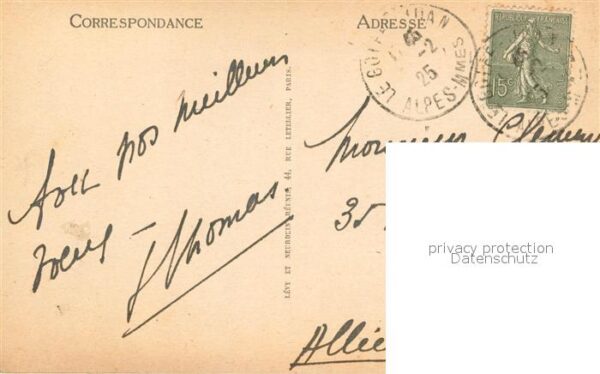 CORRESPONDANCE
ADRESSE
RÉPUBLIQUE FRANÇAISE
15c
LE GOLFE-JUAN
-2
25
ALPES-MMES
Avec nos meilleurs
voeux –
Thomas
LÉVY ET NEURDEIN RÉUNIS, 44, RUE LETELLIER, PARIS.
Monsieur
35
Allie
privacy protection
Datenschutz